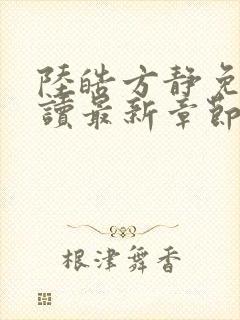 陸皓方靜免
讀最新章節
根津舞香